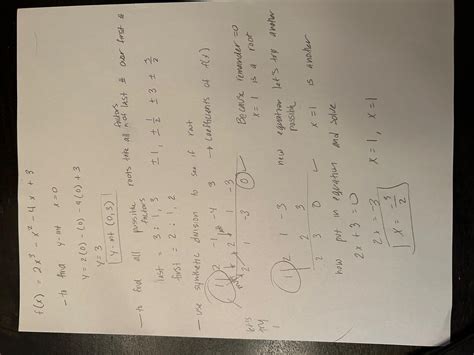 f(x) = 2x³ - x² - 4x + 3
- to find y-int x=0
y = 2(0) - (0) - 4(0) + 3
y = 3
y-int (0,3)
- to find all possible roots take all factors of last # over first #
factors
last = 3 : 1, 3
first = 2 : 1, 2
±1, ±1/2 ±3 ±3/2
- use synthetic division to see if root
1| 2 -1 -4 3 → coefficients of f(x)
2 1 -3
2 1 -3 0 ✓
Because remainder = 0
x = 1 is a root
let's try 1
new equation let's try another possible
1| 2 1 -3
2 3
2 3 0 ✓ x=1 is another
now put in equation and solve
2x + 3 = 0
2x = -3
x = -3/2
x=1, x=1